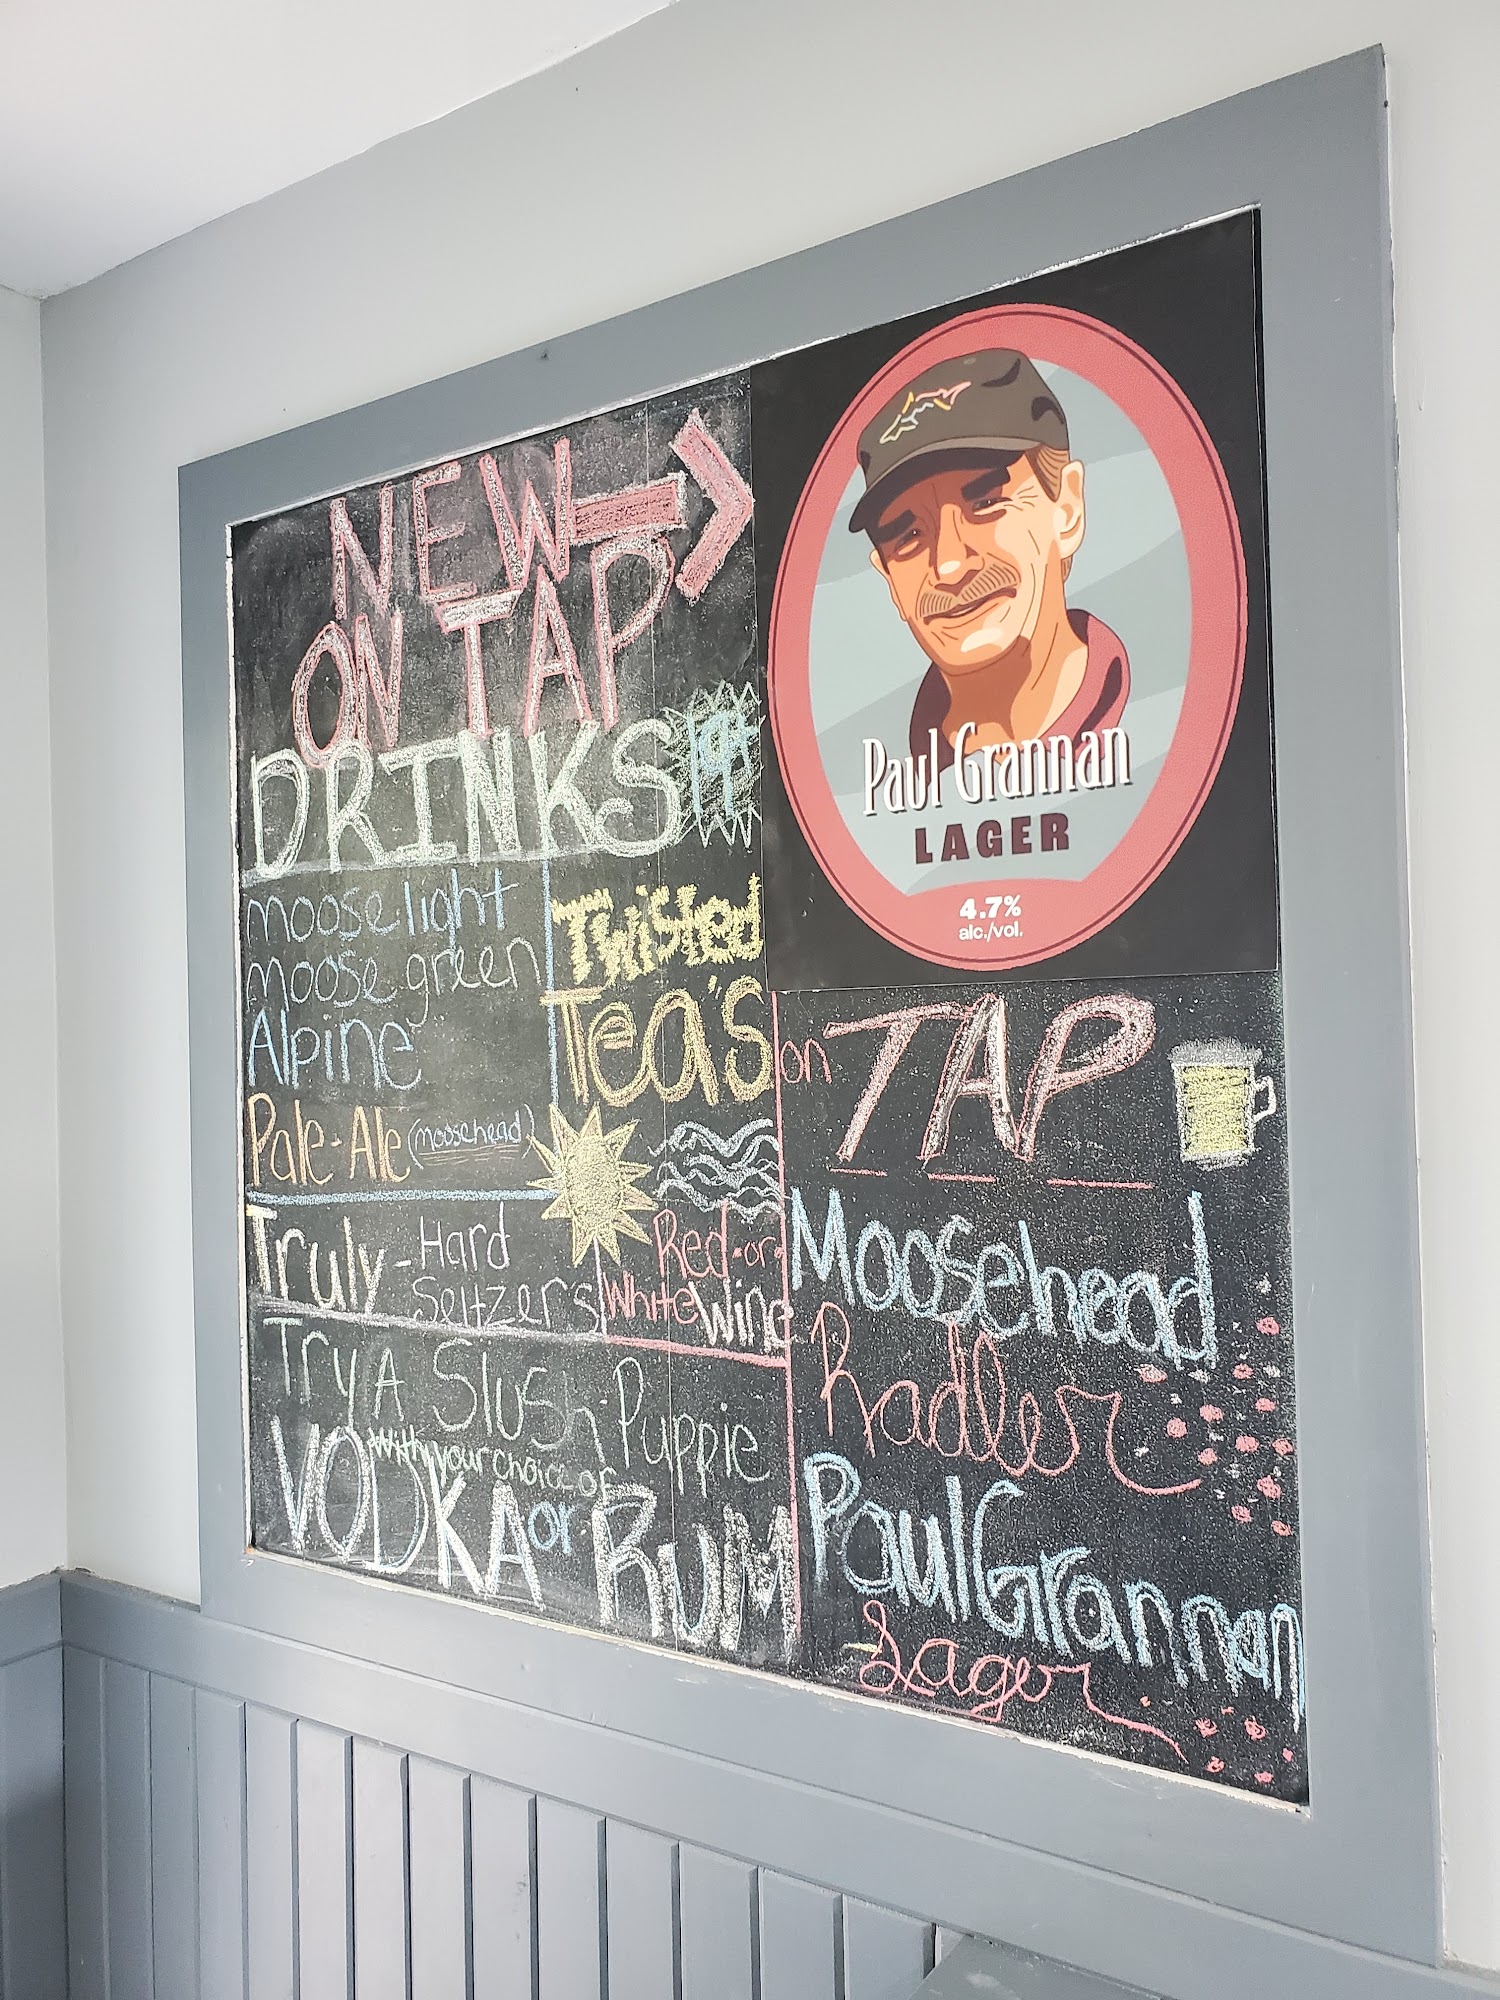 NEW
ON TAP
DRINKS
Moose light
Moose green
Alpine
Pale-Ale (moosehead)
Twisted
Tea's
Truly - Hard
Seltzers
Red-or
White Wine
Try A Slush Puppie
With your choice of
VODKA or RUM
Paul Grannan
LAGER
4.7%
alc./vol.
on TAP
Moosehead
Radler
Paul Grannan
Lager